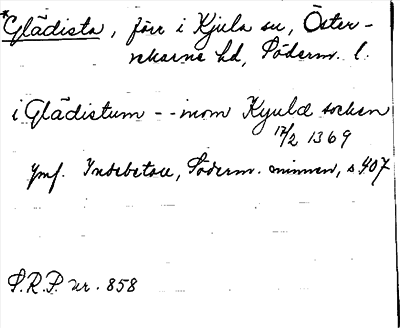 *Glädista, förr i Kjula sn, Öster-
rekarne hd, Söderm. l.
i Glädistum -- inom Kyuld socken
17/2 1369
Jmf. Indebetou, Söderm. minnen, s 407
S.R.P. nr. 858